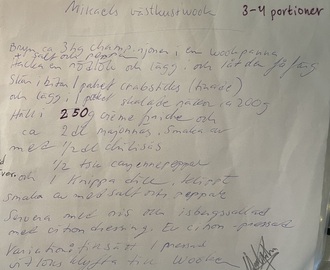 Mikaels västkustwook
3-4 portioner
Bryn ca 3 hg champinjoner i en wookpanna
salt och peppar
Hacka en rödlök och lägg och låt den få
Skär i bitar 1 paket crabsticks (tinade)
och lägg i 1 paket skalade räkor ca 200g
Häll i 250g creme fraiche och
ca 2 dl majonnäs, smaka av
med 1/2 dl chilisås
1/2 tsk cayennepeppar
och 1 knippa dill, klippt
smaka av med salt och peppar
Servera med ris och isbergssallad
med citrondressing. Ev citron pressad
Variationstillsätt 1 pressad
vitlöksklyfta till wooken